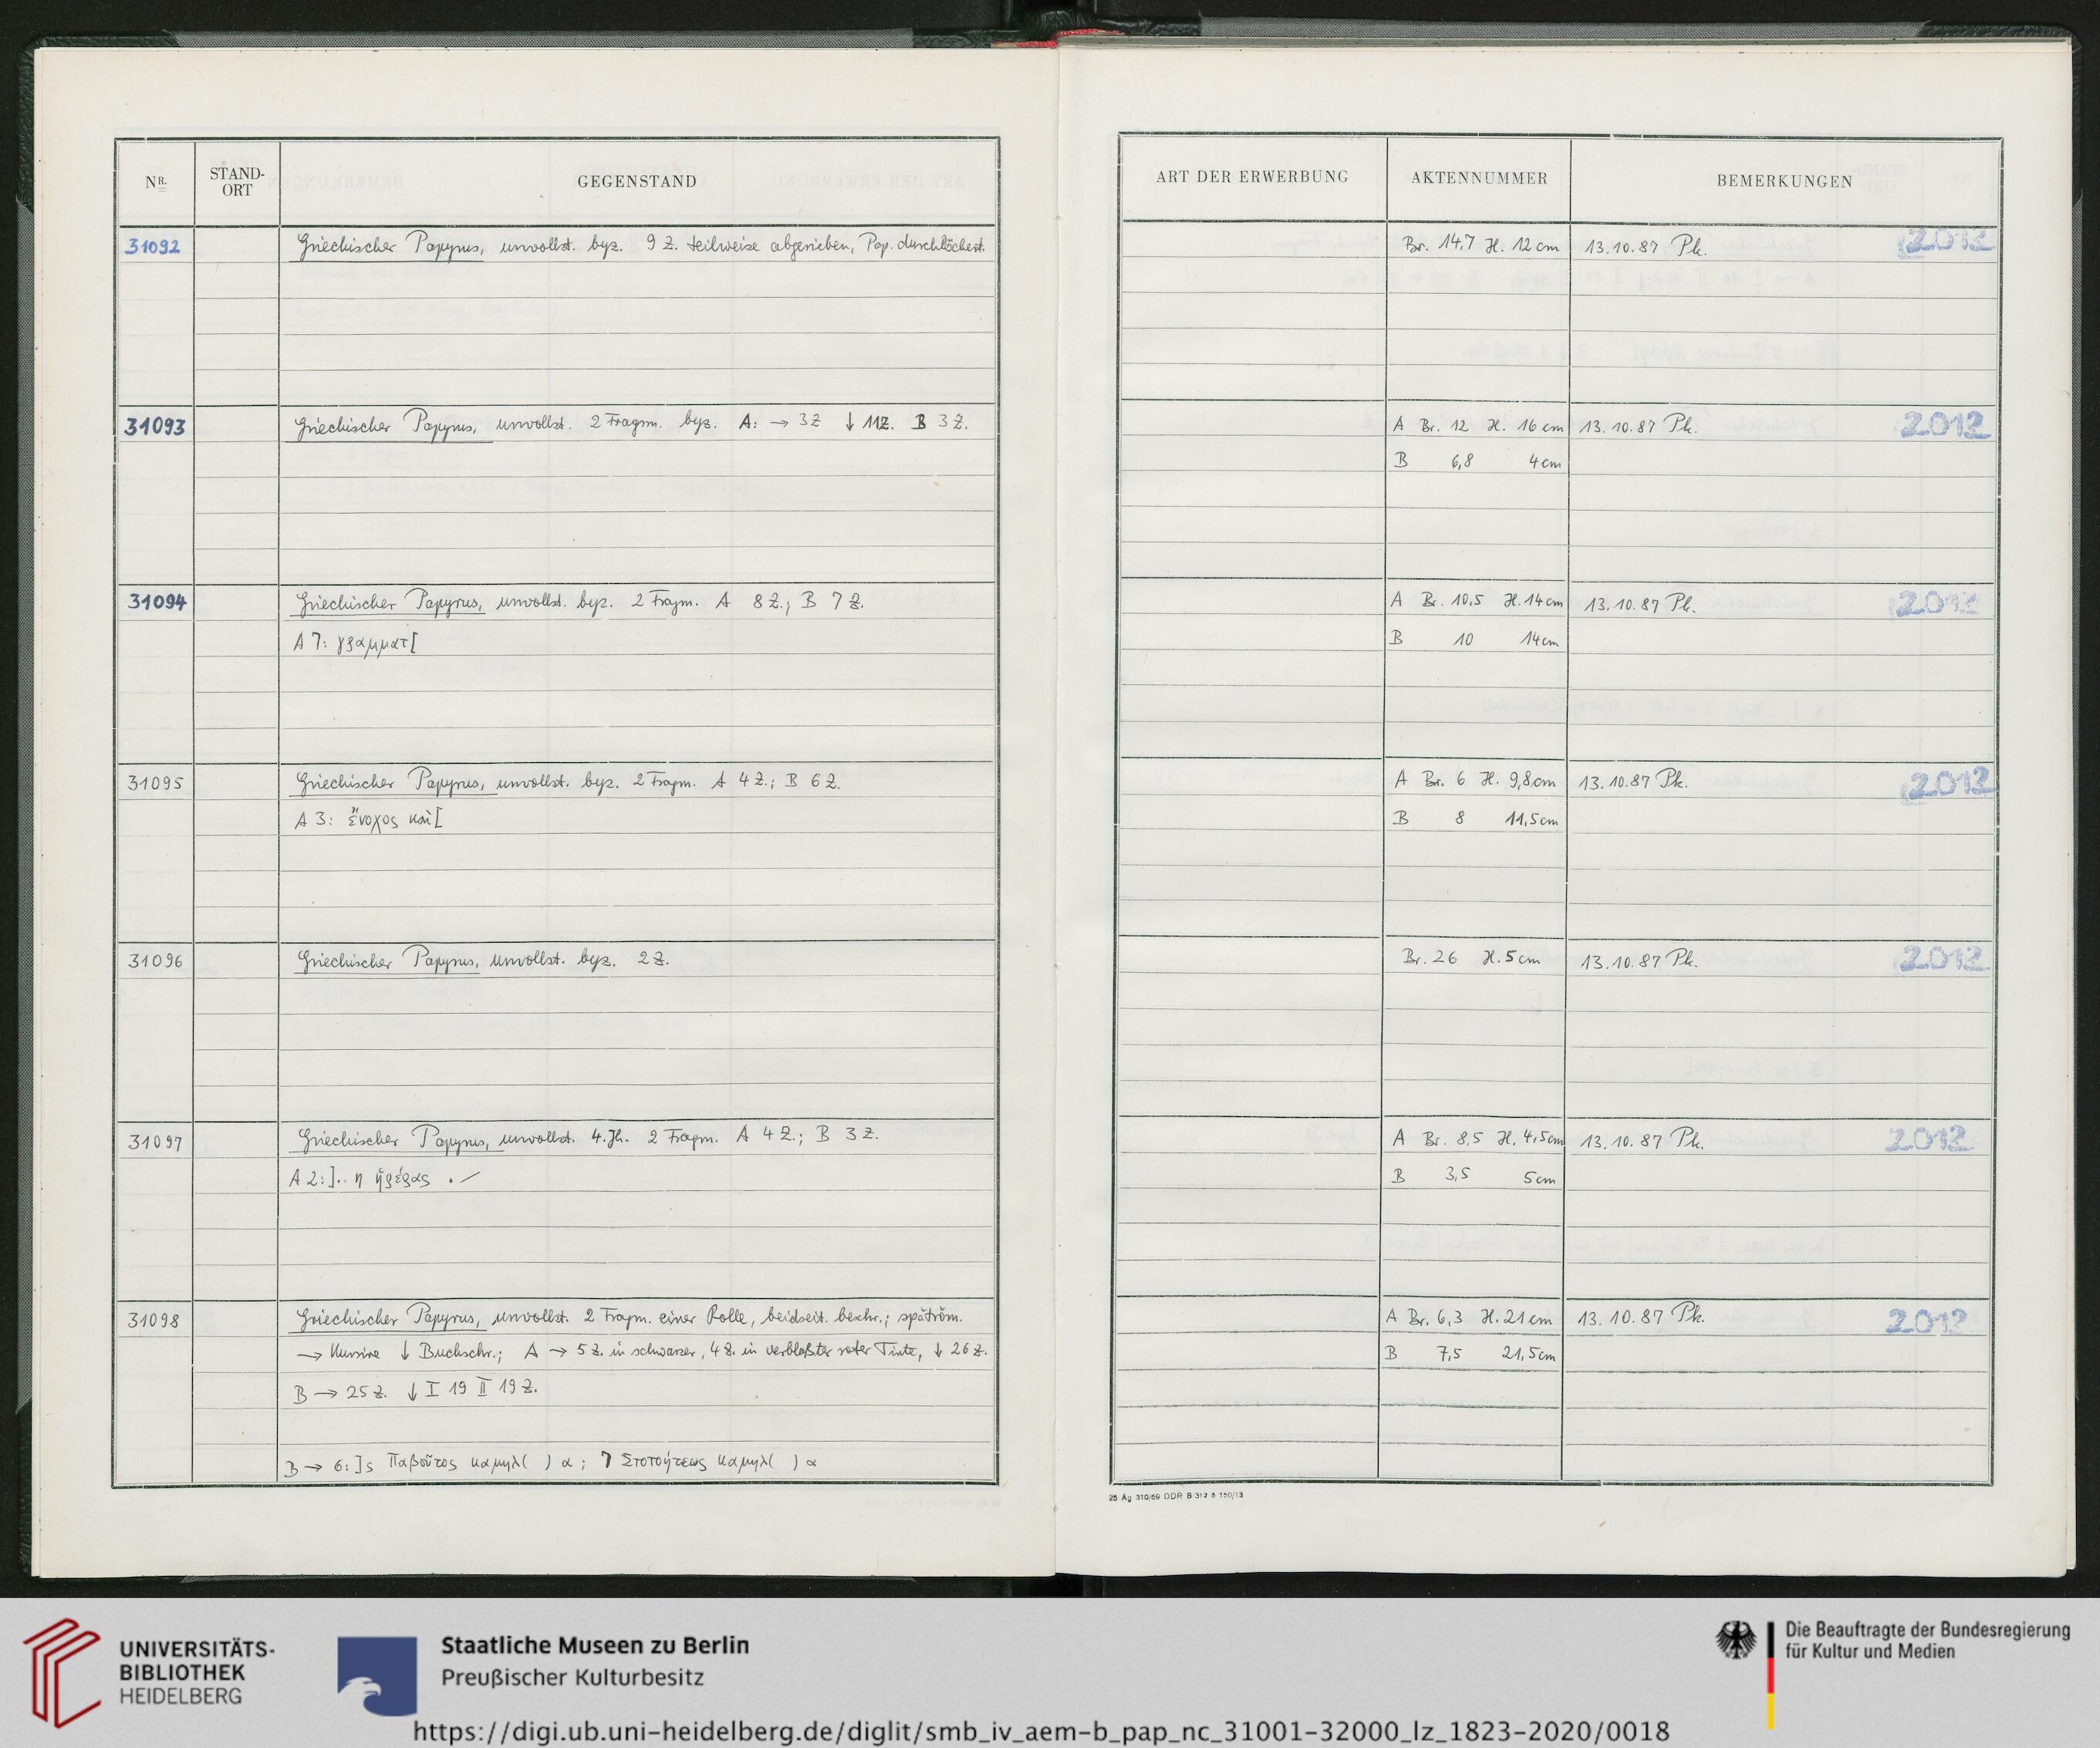 NR. STAND-ORT GEGENSTAND
31092 Griechischer Papyrus, unvollst. byz. 9 Z. teilweise abgerieben, Pap. durchlöchert.
31093 Griechischer Papyrus, unvollst. 2 Fragm. byz. A: → 3 Z ↓ 11 Z. B 3 Z.
31094 Griechischer Papyrus, unvollst. byz. 2 Fragm. A 8 Z.; B 7 Z.
A 7: γραμματ[
31095 Griechischer Papyrus, unvollst. byz. 2 Fragm. A 4 Z.; B 6 Z.
A 3: ἔνοχος καὶ[
31096 Griechischer Papyrus, unvollst. byz. 2 Z.
31097 Griechischer Papyrus, unvollst. 4. Jh. 2 Fragm. A 4 Z.; B 3 Z.
A 2: ].. η
31098 Griechischer Papyrus, unvollst. 2 Fragm. einer Rolle, beidseit. beschr.; spätröm.
→ Kursive ↓ Buchschr.; A → 5 Z. in schwarzer, 4 Z. in verblaßter roter Tinte, ↓ 26 Z.
B → 25 Z. ↓ I 19 II 19 Z.
B → 6: ]ς Παβοῦτος καμηλ( ) α; 7 Στοτοήτεως καμηλ( ) α
ART DER ERWERBUNG AKTENNUMMER BEMERKUNGEN
Br. 14,7 H. 12 cm 13.10.87 Pk. 2012
A Br. 12 H. 16 cm 13.10.87 Pk. 2012
B 6,8 4 cm
A Br. 10,5 H. 14 cm 13.10.87 Pk. 2012
B 10 14 cm
A Br. 6 H. 9,8 cm 13.10.87 Pk. 2012
B 8 11,5 cm
Br. 26 H. 5 cm 13.10.87 Pk. 2012
A Br. 8,5 H. 4,5 cm 13.10.87 Pk. 2012
B 3,5 5 cm
A Br. 6,3 H. 21 cm 13.10.87 Pk. 2012
B 7,5 21,5 cm
25 Ag 310/69 DDR B 312 5 150/13
UNIVERSITÄTS-
BIBLIOTHEK
HEIDELBERG
Staatliche Museen zu Berlin
Preußischer Kulturbesitz
Die Beauftragte der Bundesregierung
für Kultur und Medien
https://digi.ub.uni-heidelberg.de/diglit/smb_iv_aem-b_pap_nc_31001-32000_lz_1823-2020/0018